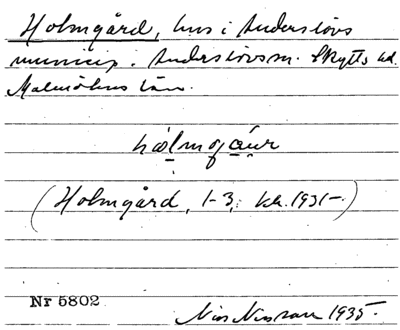 Holmgård, hus i Anderslövs
municip. Anderslövs sn. Skytts hd.
Malmöhus län.
hålmgäur
(Holmgård, 1-3, kb. 1931-)
Nr 5802
Nils Nilsson 1935.